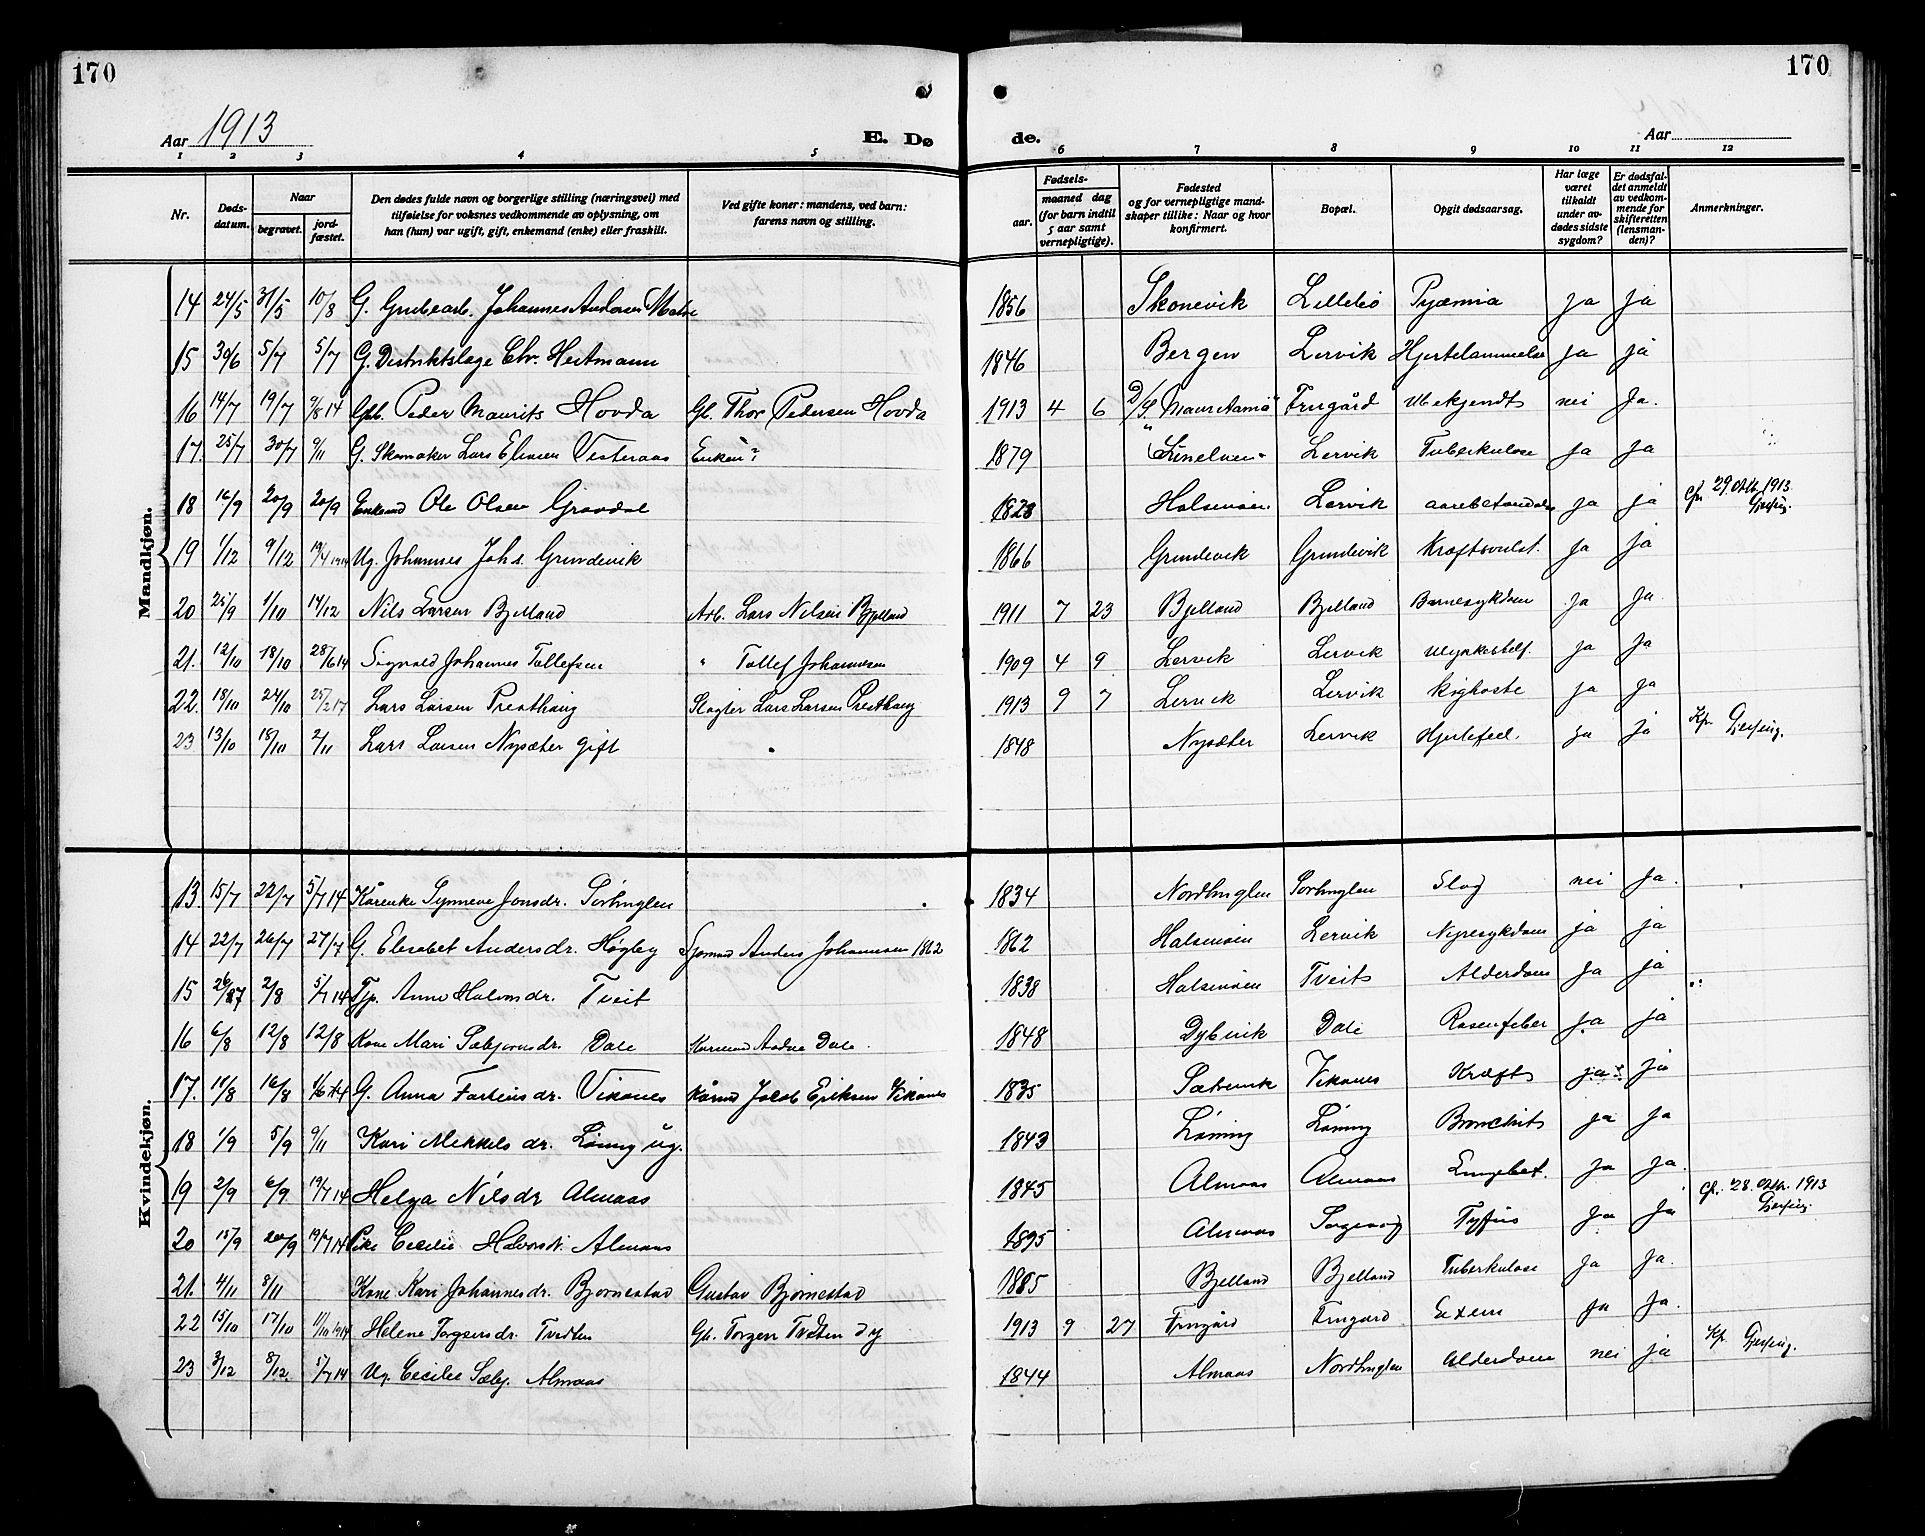 170
170
Aar 1913
E. Dø
de.
Aar
1 2 3 4 5 6 7 8 9 10 11 12
Nr.
Døds-
datum.
Naar
begravet.
jord-
fæstet.
Den dødes fulde navn og borgerlige stilling (næringsvei) med
tilføielse for voksnes vedkommende av oplysning, om
han (hun) var ugift, gift, enkemand (enke) eller fraskilt.
Ved gifte koner: mandens, ved barn:
farens navn og stilling.
Fødsels-
aar. maaned dag
(for barn indtil
5 aar samt
vernepligtige).
Fødested
og for vernepligtige mand-
skaper tillike: Naar og hvor
konfirmert.
Bopæl.
Opgit dødsaarsag.
Har læge
været
tilkaldt
under av-
dødes sidste
sygdom?
Er dødsfal-
det anmeldt
av vedkom-
mende for
skifteretten
(lensman-
den)?
Anmerkninger.
Mandkjøn.
14 24/5 31/5 10/8 G. Grubearb. Johannes Andersen 1856 Skonevik Lillebø Pyæmia ja ja
15 30/6 5/7 5/7 G. Distriktslæge Chr. Heitmann 1846 Bergen Lervik Hjertelammelse ja ja
16 14/7 19/7 9/8 14 Gb. Peder Maurits Hovda Gb. Thor Pedersen Hovda 1913 4 6 Frugård Ubekjendt nei Ja.
17. 25/7 30/7 9/11 G. Skomaker Lars Elinsen Vesteraas 1879 Lervik Tuberkulose ja ja
18 16/9 20/9 20/9 Enkemd Ole Olsen Gravdal 1828 Halsenøen Lervik ja ja Cfr. 29. Okt. 1913
19 1/12 9/12 19/4 1914 Ug. Johannes Johs. Grindevik 1866 Grindevik Grindevik Kræftsvulst. ja ja
20 25/9 1/10 14/12 Nils Larsen Bjelland Arb. Lars Nilsen Bjelland 1911 7 23 Bjelland Bjelland Barnesykdom ja ja
21. 12/10 18/10 28/6 14 Sigvald Johannes Tollefsen " Tollef Johannesen 1909 4 9 Lervik Lervik ja ja
22. 18/10 24/10 25/2 17 Lars Larsen Presthaug Slagter Lars Larsen Presthaug 1913 9 7 Lervik Lervik Kighoste ja ja
23 13/10 18/10 2/11 Lars Larsen Nysæter gift " 1848 Nysæter Lervik Hjertefeil. ja ja Kfr.
Kvindekjøn.
13. 15/7 22/7 5/7 14 Kårenke Synneve Jonsdr. Sørhuglen 1834 Nordhuglen Sørhuglen Slag nei Ja.
14 22/7 26/7 27/7 G. Elisabet Andersdr. Høgley Sjømand Anders Johannesen 1862 1862 Halsenøen Lervik Nyresykdom ja ja
15 2/8 5/7 14 Anna Halvorsdr. Tveit 1838 Halsenøen Tveit Alderdom Ja ja
16 6/8 12/8 12/8 Kone Mari Sæbjørnsdr. Dale Kårmand Aadne Dale. 1848 Dybvik Dale Rosenfeber ja ja
17. 11/8 16/8 G. Anna Farteinsdr. Vikanes Kårmd Jacob Eriksen Vikanes 1835 Sætrevik Vikanes Kræft ja ja
18 1/9 5/9 9/11 Kari Mikkelsdr. Løning ug. 1843 Løning Løning Bronchit ja ja
19 2/9 6/9 19/7 14 Helga Nilsdr Almaas 1845 Almaas Almaas ja ja. Cfr. 28. Okt. 1913
20 15/9 20/9 19/7 14 Pike Cecilie Halvorsdr. Almaas 1895 Almaas Sagvaag Tyfus ja ja
21. 4/11 8/11 Kone Kari Johannesdr. Bjørnestad Gustav Bjørnestad 1885 Bjelland Bjelland Tuberkulose ja ja.
22 15/10 17/10 11/10 1914 Helene Torgersdr. Tvedten Gb. Torger Tvedten 1913 9 27 Frugård Frugård ja ja.
23 3/12 8/12. 5/7 14 Ug. Cecilie Sæbj. Almaas 1844 Almaas Nordhuglen Alderdom nei ja Kfr.